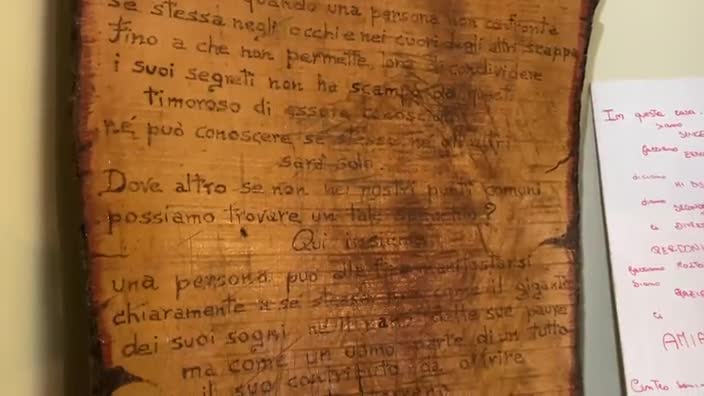 quando una persona non confronta
se stessa negli occhi e nei cuori degli altri scappa
fino a che non permette loro di condividere
i suoi segreti non ha scampo da questi
timoroso di essere conosciuto
né può conoscere se stesso né gli altri
sarà solo.
Dove altro se non nei nostri punti comuni
possiamo trovare un tale specchio?
Qui insieme
una persona può alla fine manifestarsi
chiaramente a se stessa non come il gigante
dei suoi sogni né il nano delle sue paure
ma come un uomo parte di un tutto
il suo contributo da offrire
Im questa casa..
siamo
SINCE
facciamo
diciamo
MI DIS
diamo
SECOND
ci
facciamo
siamo
ci
AMIA
Centro